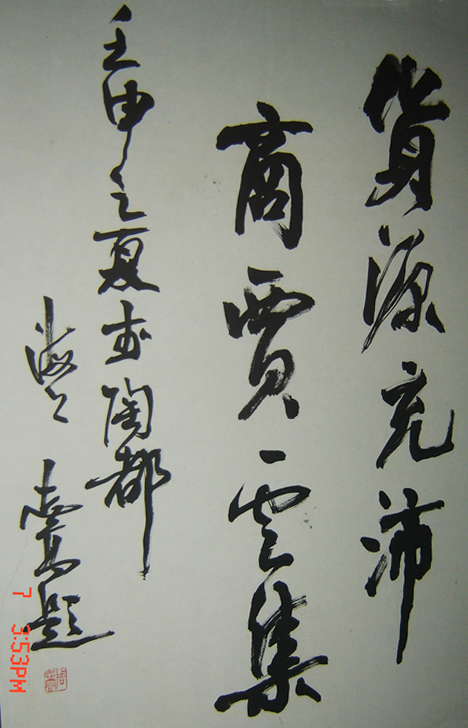 貨源充沛
商賈雲集
壬申之夏於陶都
海上
題
7 3:53PM